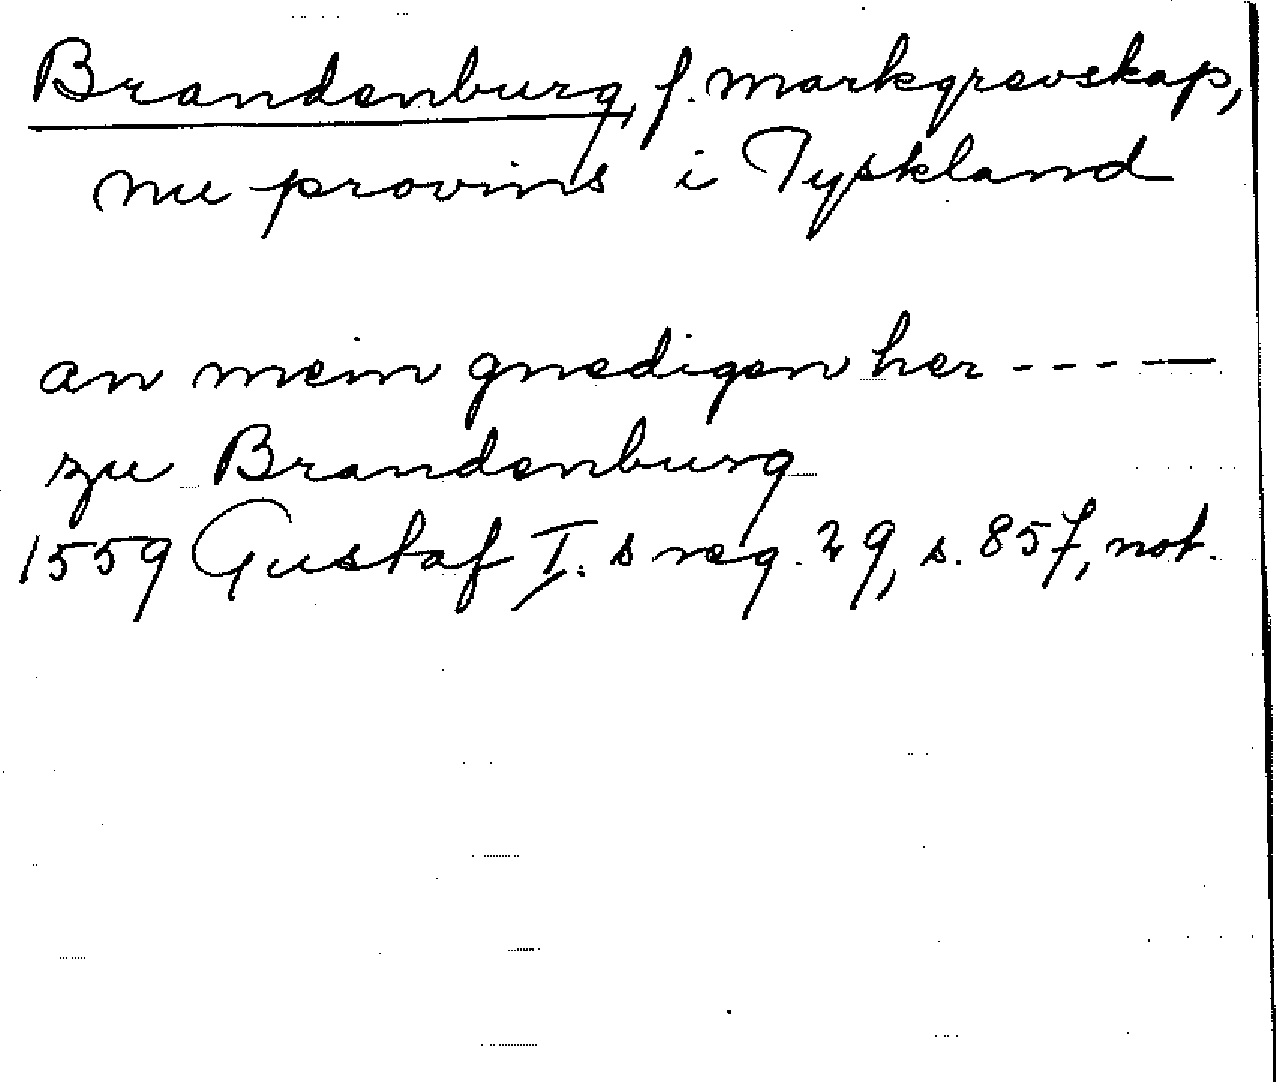 Brandenburg, f. markgrevskap,
nu provins i Tyskland
an mein gnedigen her - - - —
zu Brandenburg
1559 Gustaf I:s reg. 29, s. 857, not.